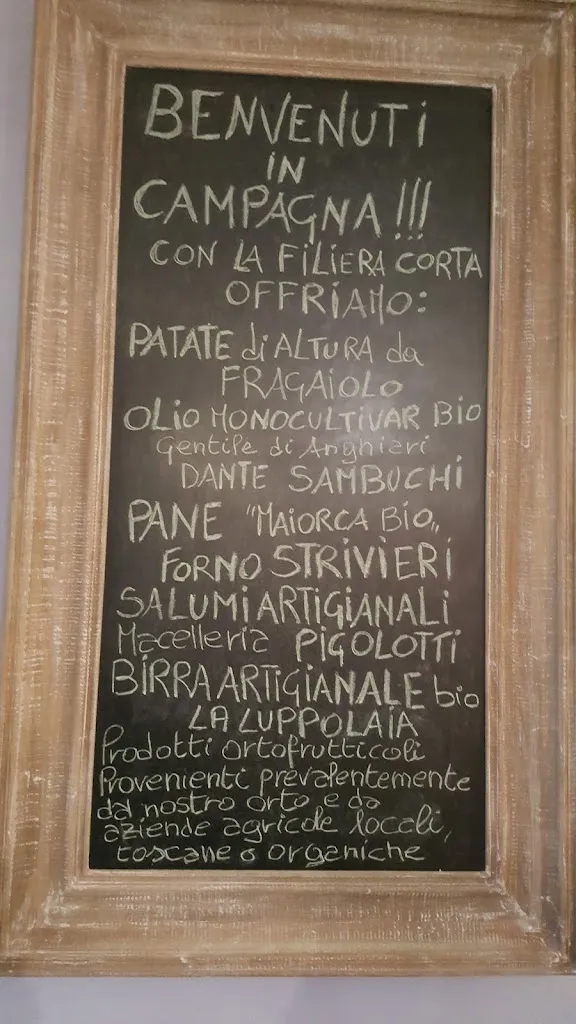 BENVENUTI
IN
CAMPAGNA!!!
CON LA FILIERA CORTA
OFFRIAMO:
PATATE di ALTURA da
FRAGAIOLO
OLIO MONOCULTIVAR BIO
Gentile di Anghieri
DANTE SAMBUCHI
PANE "MAIORCA BIO„
FORNO STRIVIERI
SALUMI ARTIGIANALI
Macelleria PIGOLOTTI
BIRRA ARTIGIANALE bio
LA LUPPOLAIA
Prodotti ortofrutticoli
Provenienti prevalentemente
dal nostro orto e da
aziende agricole locali,
toscane o organiche